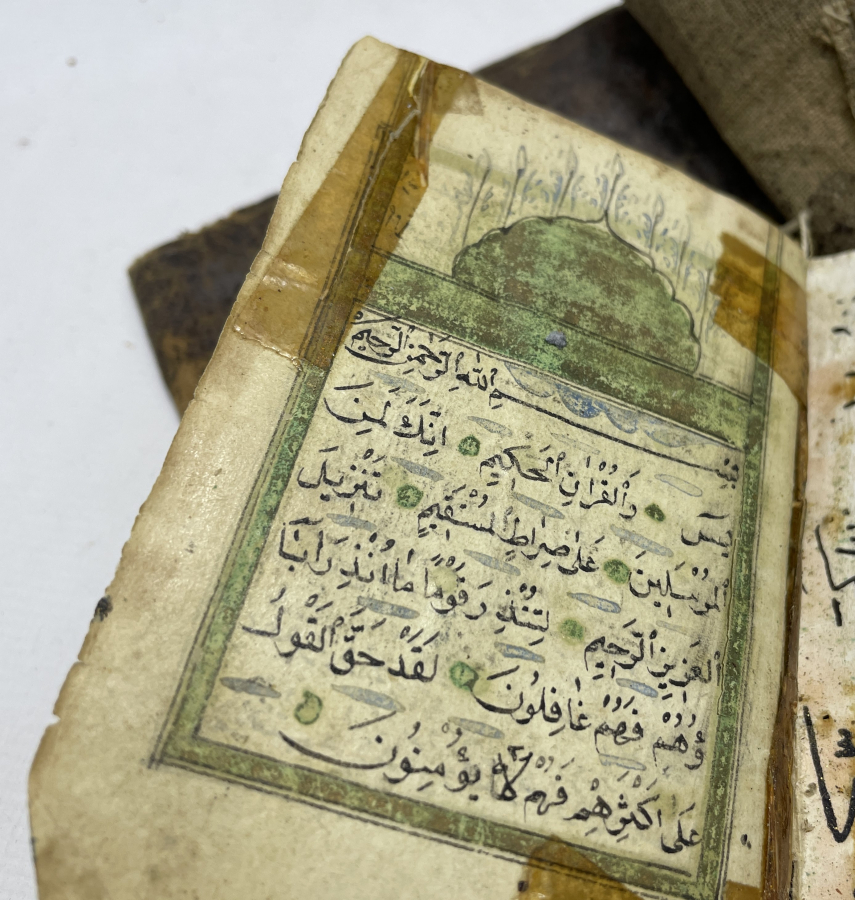 بسم الله الرحمن الرحيم
يس وَالْقُرْاٰنِ الْحَكِيمِ اِنَّكَ لَمِنَ
الْمُرْسَلِينَ عَلٰى صِرَاطٍ مُسْتَقِيمٍ تَنْزِيلَ
الْعَزِيزِ الرَّحِيمِ لِتُنْذِرَ قَوْمًا مَا اُنْذِرَ اٰبَاۤ
ؤُهُمْ فَهُمْ غَافِلُونَ لَقَدْ حَقَّ الْقَوْلُ
عَلٰى اَكْثَرِهِمْ فَهُمْ لَا يُؤْمِنُونَ